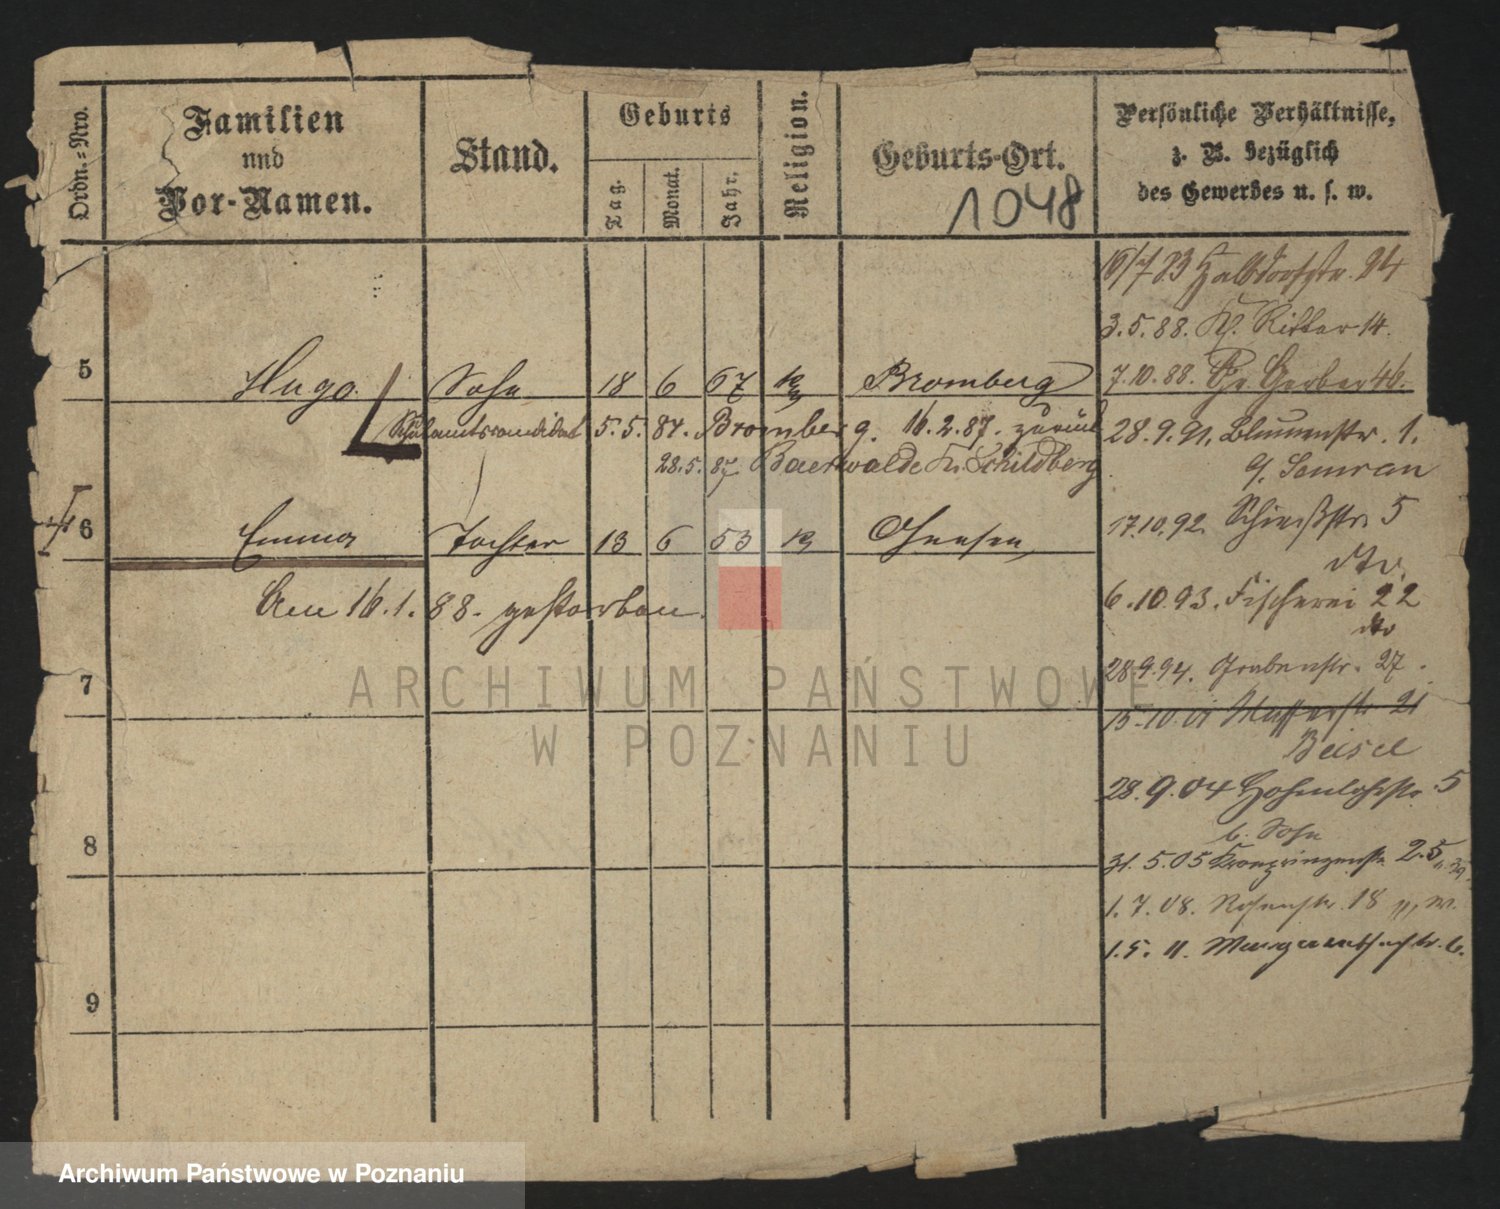 Ordn.=Nro.
Familien
und
Vor-Namen.
Stand.
Geburts
Tag.
Monat.
Jahr.
Religion.
Geburts-Ort.
1048
Persönliche Verhältnisse,
z. B. bezüglich
des Gewerbes u. s. w.
16/7 83 Halbdorfstr. 24
3.5.88. Kl. Ritter 14.
7.10.88. Gr. Gerber 46.
5 Hugo Sohn 18 6 67 Bromberg
Schulamtscandidat 5.5.87. Bromberg. 16.2.87. zurück
28.5.87 Baerwalde Kr. Schildberg
28.9.91. Blumenstr. 1.
17.10.92. Schießstr. 5
dto.
6 Emma Tochter 13 6 53 Gnesen
Am 16.1.88. gestorben.
6.10.93. Fischerei 22
dto
28.9.94. Grabenstr. 27.
7
15.10.01 21
Beisel
28.9.04 Hohenlohestr. 5
b. Sohn
8
31.5.05 Kronprinzenstr. 25
1.7.08. Rosenstr. 18
1.5.11. Margarethenstr. 6.
9
ARCHIWUM PAŃSTWOWE
W POZNANIU
Archiwum Państwowe w Poznaniu